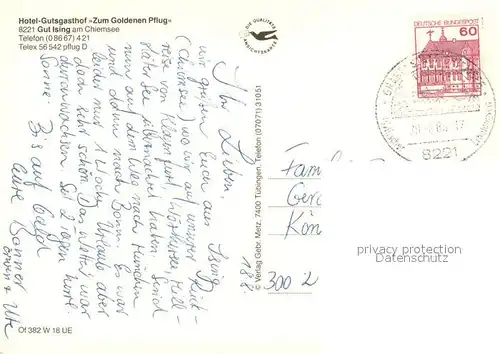 Hotel-Gutsgasthof »Zum Goldenen Pflug«
8221 Gut Ising am Chiemsee
Telefon (0 86 67) 4 21
Telex 56 542 pflug D
DIE QUALITÄTS
ANSICHTSKARTE
DEUTSCHE BUNDESPOST
60
8221
18.8.
Ihr Lieben,
wir grüßen Euch aus Ising
(Chiemsee) wo wir auf unserer Rück-
reise von Klagenfurt, Wörthersee, Mill-
stätter See übernachtet haben. Sind
nun auf dem Weg nach München
und dann nach Bonn. Es war
leider nur 1 Woche Urlaub aber
dann sehr schön. Das Wetter war
durchwachsen. Seit 2 Tagen herrl.
Sonne. Bis auf bald
Eure Bonner
Erwin + Ute
© Verlag Gebr. Metz, 7400 Tübingen, Telefon (07071) 31051
Fam
Ger
Kön
300 2
privacy protection
www.oldthing.com
Of 382 W 18 UE